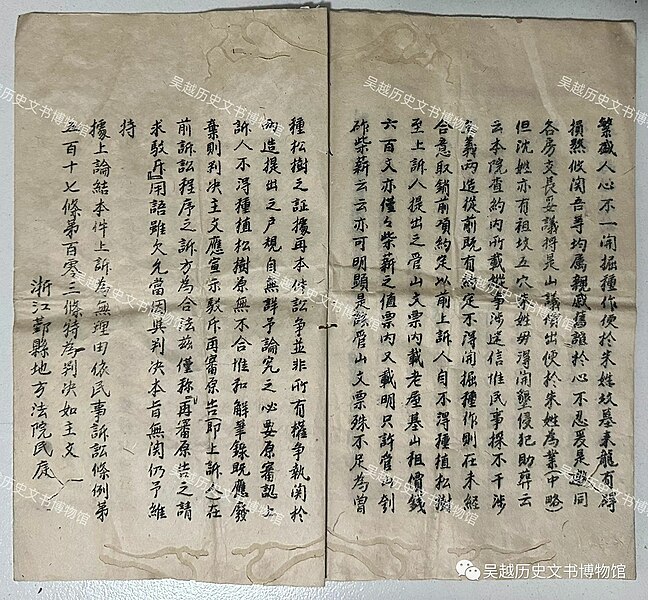 繁盛人心不一開掘種作便於朱姓坟墓來龍有碍
損然攸関吾等均属親戚舊誼於心不忍爰是邀同
各房支長妥議將是山議價出便於朱姓為業(中略)
但沈姓亦有祖坟五穴朱姓毋得開壟侵犯助葬云
云本院查約內所載縱事涉迷信惟民事採不干涉
主義兩造從前既有約定不得開掘種作則在未經
合意取銷前項約定以前上訴人自不得種植松樹
至上訴人提出之管山文票內載老屋基山租價錢
六百文亦僅々柴薪之值票內又載明只許管 剖
斫柴薪云云亦可明顯是該管山文票殊不足為曾
種松樹之証據再本件訟争並非所有權争執関於
兩造提出之户規自無詳予論究之必要原審認上
訴人不得種植松樹原無不合惟和解筆錄既應廢
棄則判决主文應宣示駁斥再審原告(即上訴人)在
前訴訟程序之訴方為合法兹僅称「再審原告之請
求駁斥」用語雖欠允當因與判决本旨無関仍予維
持
據上論結本件上訴為無理由依民事訴訟條例第
五百十七條第百零三條特為判决如主文
浙江鄞縣地方法院民庭
吴越历史文书博物馆